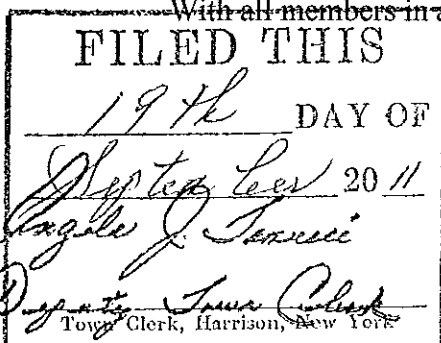 With all members in
FILED THIS
19th DAY OF
September 2011
Angelo J.
Deputy Town Clerk
Town Clerk, Harrison, New York